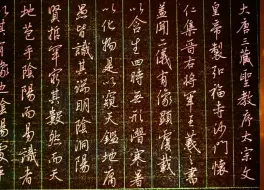 大唐三藏聖教序太宗文
皇帝製弘福寺沙門懷
仁集晉右將軍王羲之書
蓋聞二儀有像顯覆載
以含生四時無形潛寒暑
以化物是以窺天鑑地庸
愚皆識其端明陰洞陽
賢哲罕窮其數然而天
地苞乎陰陽而易識者
以其有像也陰陽處乎